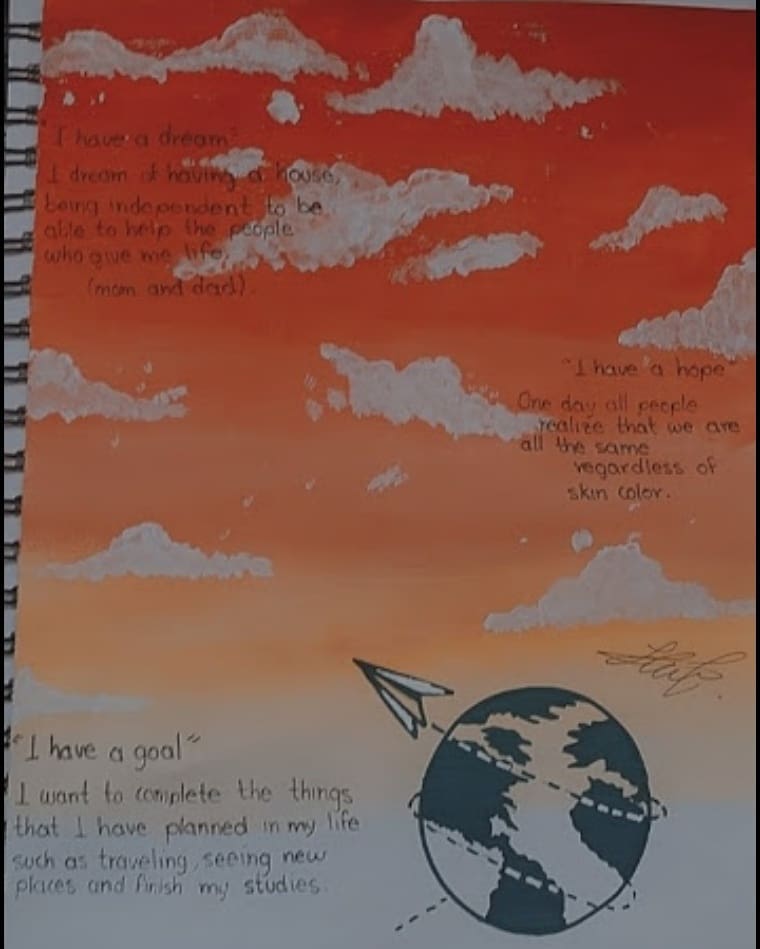 "I have a dream"
I dream of having a house,
being independent to be
able to help the people
who give me life,
(mom and dad).
"I have a hope"
One day all people
realize that we are
all the same
regardless of
skin color.
"I have a goal"
I want to complete the things
that I have planned in my life
such as traveling, seeing new
places and finish my studies.